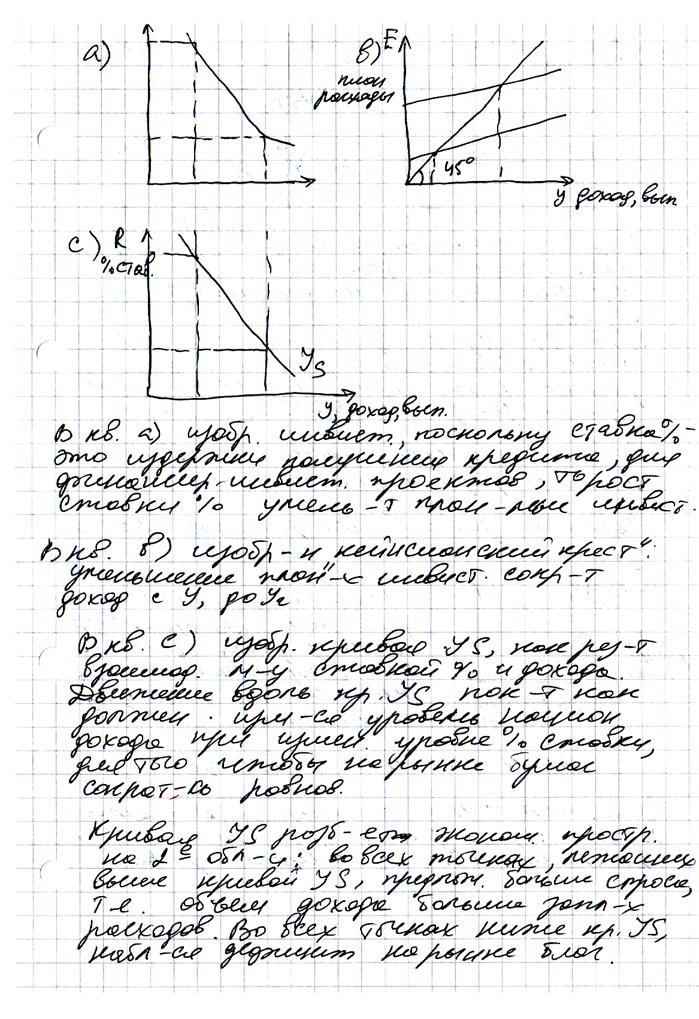 а)
в) E
план
расходы
45°
y доход, вып
с) R
% став.
YS
y, доход, вып.
В кв. а) изобр. инвест, поскольку ставка % -
это издержки получения кредита, для
финансир. инвест. проектов, то рост
ставки % умень-т план-мые инвест.
В кв. в) изобр-н кейнсианский крест":
уменьшение план-х инвест. сокр-т
доход с Y, до Y2
В кв. С) изобр. кривая YS, как рез-т
взаимод. м-у ставкой % и дохода.
Движение вдоль кр. YS пок-т как
должен изм-ся уровень национ
дохода при измен. уровне % ставки,
для того чтобы на рынке благ
сохрат-сь равнов.
Кривая YS разб-ет эконом. простр.
на 2е обл-и: во всех точках, лежащих
выше кривой YS, предлож. больше спроса,
т.е. объем дохода больше запл-х
расходов. Во всех точках ниже кр. YS,
набл-ся дефицит на рынке благ.